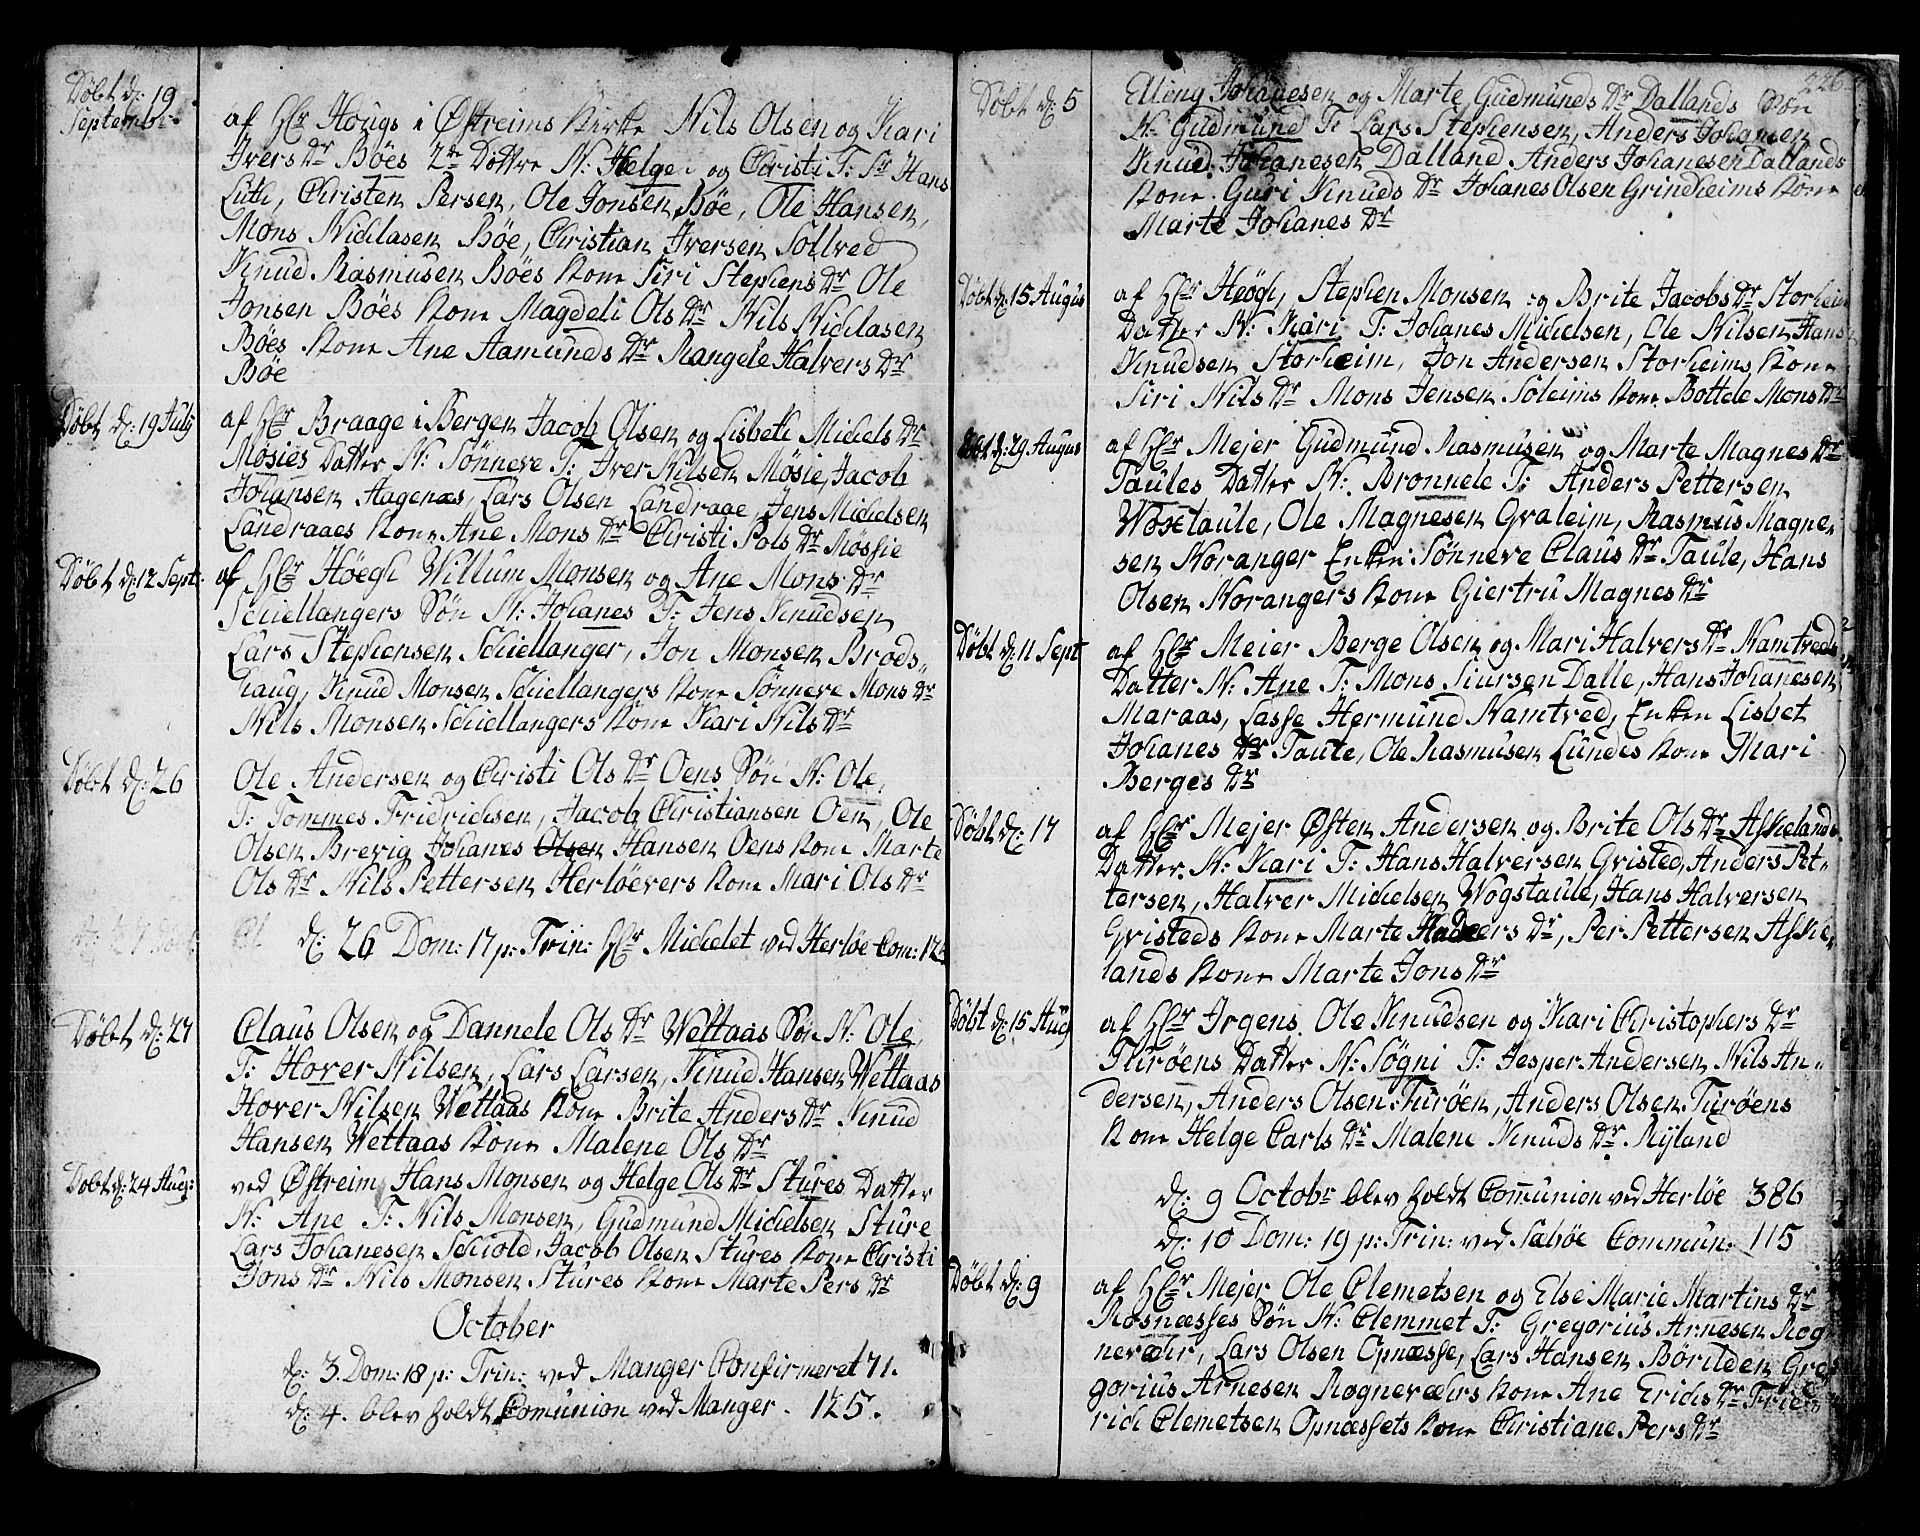 Døbt d: 19
Septembr.
af Hr Hougs i Østreims Kirke Nils Olsen og Kari
Ivers Dr Böes 2de Døttre N: Helge og Christi T: Sr Hans
Luth, Christen Persen, Ole Jonsen Böe, Ole Hansen,
Mons Nichlasen Böe, Christian Iversen Soltved
Knud Rasmusen Böes Kone Siri Stephens Dr Ole
Jonsen Böes Kone Magdeli Ols Dr Nils Nichlasen
Böes Kone Ane Aamunds Dr Rangele Halvers Dr
Böe
Døbt d: 19 July
af Hr Braage i Bergen Jacob Olsen og Lisbeth Michels Dr
Mösies Datter N: Sönneve T: Iver Nilsen Mösie, Jacob
Johansen Aagenæs, Lars Olsen Landraae, Jens Michelsen
Landraaes Kone Ane Mons Dr Christi Pols Dr Mössie
Døbt d: 12 Sept:
af Hr Höegh Willum Monsen og Ane Mons Dr
Schiellangers Sön N: Johanes T: Jens Knudsen
Lars Stephensen Schiellanger, Jon Monsen Brods-
haug, Knud Monsen Schiellangers Kone Sönneve Mons Dr
Nils Monsen Schiellangers Kone Kari Nils Dr
Døbt d: 26
Ole Andersen og Christi Ols Dr Oens Sön N: Ole,
T: Tommes Fridrichsen, Jacob Christiansen Oen, Ole
Olsen Brevig Johanes Olsen Hansen Oens Kone Marte
Ols Dr Nils Pettersen Herlöevers Kone Mari Ols Dr
d: 26 Dom: 17 p: Trin: Hr Michelet ved Herlöe Com: 12
Døbt d: 27
Claus Olsen og Dannele Ols Dr Wettaas Sön N: Ole,
T: Hover Nilsen, Lars Larsen, Knud Hansen Wettaas
Hover Nilsen Wettaas Kone Brite Anders Dr Knud
Hansen Wettaas Kone Malene Ols Dr
Døbt d: 24 Aug:
ved Østreim Hans Monsen og Helge Ols Dr Stures Datter
N: Ane T: Nils Monsen, Gudmund Michelsen Sture
Lars Johanesen Schiold, Jacob Olsen Stures Kone Christi
Jons Dr Nils Monsen Stures Kone Marte Pers Dr
October
d: 3 Dom: 18 p: Trin: ved Manger Confirmeret 71.
d: 4. blev holdt Comunion ved Manger. 125.
226
Døbt d: 5
Elling Johanesen og Marte Gudmunds Dr Dallands Sön
N: Gudmund T: Lars Stephensen, Anders Johansen
Knud Johanesen Dalland. Anders Johanesen Dallands
Kone Guri Knuds Dr Johanes Olsen Grindheims Kone
Marte Johanes Dr
Døbt d: 15 Augus
af Hr Höegh, Stephen Monsen og Brite Jacobs Dr Storheim
Datter N: Kari T: Johanes Michelsen, Ole Nilsen, Hans
Knudsen Storheim, Jon Andersen Storheims Kone
Siri Nils Dr Mons Jensen Soleims Kone Bottele Mons Dr
Døbt d: 29 Augus
af Hr Mejer Gudmund Rasmusen og Marte Magnes Dr
Taules Datter N: Bronnele T: Anders Pettersen
Woxtaule, Ole Magnesen Gvaleim, Rasmus Magne-
sen Noranger Enken Sönneve Claus Dr Taule, Hans
Olsen Norangers Kone Giertru Magnes Dr
Døbt d: 11 Sept
af Hr Meier Berge Olsen og Mari Halvers Dr Namtveds
Datter N: Ane T: Mons Siursen Dalle, Hans Johanesen
Maraas, Lasse Hermund Namtved, Enken Lisbet
Johanes Dr Taule, Ole Rasmusen Lundes Kone Mari
Berges Dr
Døbt d: 17
af Hr Mejer Østen Andersen og Brite Ols Dr Askelands
Datter N: Kari T: Hans Halversen Gristed, Anders Pet-
tersen, Halver Michelsen Wogstaule, Hans Halversen
Gristeds Kone Marte Dr, Per Pettersen Askie-
lands Kone Marte Jons Dr
Døbt d: 15 Aug
af Hr Irgens Ole Knudsen og Kari Christophers Dr
Turöens Datter N: Sögni T: Jesper Andersen Nils An-
dersen, Anders Olsen Turöen, Anders Olsen Turöens
Kone Helge Carls Dr Malene Knuds Dr Myland
d: 9 Octobr blev holdt Comunion ved Herlöe 386
d: 10 Dom: 19 p: Trin: ved Sæböe Commun: 115
Døbt d: 9
af Hr Mejer Ole Clemetsen og Else Marie Martins Dr
Rosnæsses Sön N: Clemmet T: Gregorius Arnesen Rog-
neværr, Lars Olsen Opnæsse, Lars Hansen Börilden Gre-
gorius Arnesen Rogneværs Kone Ane Erichs Dr Frie-
rich Clemetsen Opnæssets Kone Christiane Pers Dr